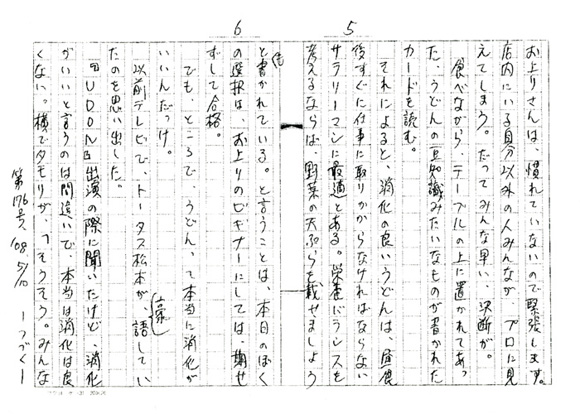 5
お上りさんは、慣れていないので緊張します。
店内にいる自分以外の人みんなが、プロに見
えてしまう。だってみんな早い、決断が。
食べながら、テーブルの上に置かれてあっ
た、うどんの豆知識みたいなものが書かれた
カードを読む。
それによると、消化の良いうどんは、昼食
後すぐに仕事に取りかからなければならない
サラリーマンに最適とある。栄養バランスを
考えるならば、野菜の天ぷらを載せましょう
6
とも書かれている。と言うことは、本日のぼく
の選択は、お上りのビギナーにしては、期せ
ずして合格。
でも、ところで、うどんって本当に消化が
いいんだっけ。
以前テレビで、トータス松本が、豪語してい
たのを思い出した。
『UDON』出演の際に聞いたけど、消化
がいいと言うのは間違いで、本当は消化は良
くない。横でタモリが、「そうそう。みんな
第176号、'08 5/10
ーつづくー